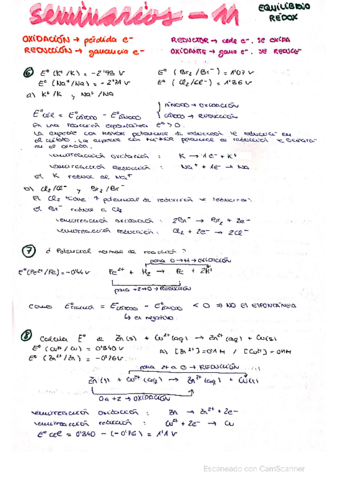 seminarios - 11
EQUILIBRIO REDOX
OXIDACIÓN → pérdida e⁻
REDUCCIÓN → ganancia e⁻
REDUCTOR → cede e⁻, SE OXIDA
OXIDANTE → gana e⁻, SE REDUCE
⑥ E° (K⁺/K) = -2'93 V E° (Br₂/Br⁻) = 1'07 V
E° (Na⁺/Na) = -2'71 V E° (Cl₂/Cl⁻) = 1'36 V
a) K⁺/K y Na⁺/Na
ÁNODO → OXIDACIÓN
E°cel = E°cátodo - E°ánodo
CÁTODO → REDUCCIÓN
En una reacción espontánea E° > 0
La especie con mayor potencial de reducción se reducirá en
el cátodo. La especie con menor potencial de reducción se oxidará
en el ánodo.
semirreacción oxidación: K → 1e⁻ + K⁺
semirreacción reducción: Na⁺ + 1e⁻ → Na
El K reduce al Na⁺
b) Cl₂/Cl⁻ y Br₂/Br⁻
El Cl₂ tiene ↑ potencial de reducción
El Br⁻ reduce a Cl₂
semirreacción oxidación: 2Br⁻ → Br₂ + 2e⁻
semirreacción reducción: Cl₂ + 2e⁻ → 2Cl⁻
⑦ ¿Potencial normal de reacción?
para 0 → +1 → OXIDACIÓN
E°(Fe²⁺/Fe) = -0'44 V Fe²⁺ + H₂ → Fe + 2H⁺
para +2 → 0 → REDUCCIÓN
Como E° = E°cátodo - E°ánodo < 0 ⇒ NO ES ESPONTÁNEA
↳ es negativo
⑧ Calcula E° de Zn(s) + Cu²⁺(aq) → Zn²⁺(aq) + Cu(s)
E° (Cu²⁺/Cu) = 0'340 V
E° (Zn²⁺/Zn) = -0'76 V a) [Zn²⁺] = 0'1 M / [Cu²⁺] = 0'1 M
para 2+ a 0 → REDUCCIÓN
Zn(s) + Cu²⁺(aq) → Zn²⁺(aq) + Cu(s)
0 a +2 → OXIDACIÓN
semirreacción oxidación: Zn → Zn²⁺ + 2e⁻
semirreacción reducción: Cu²⁺ + 2e⁻ → Cu
E° cel = 0'340 - (-0'76) = 1'1 V
Escaneado con CamScanner